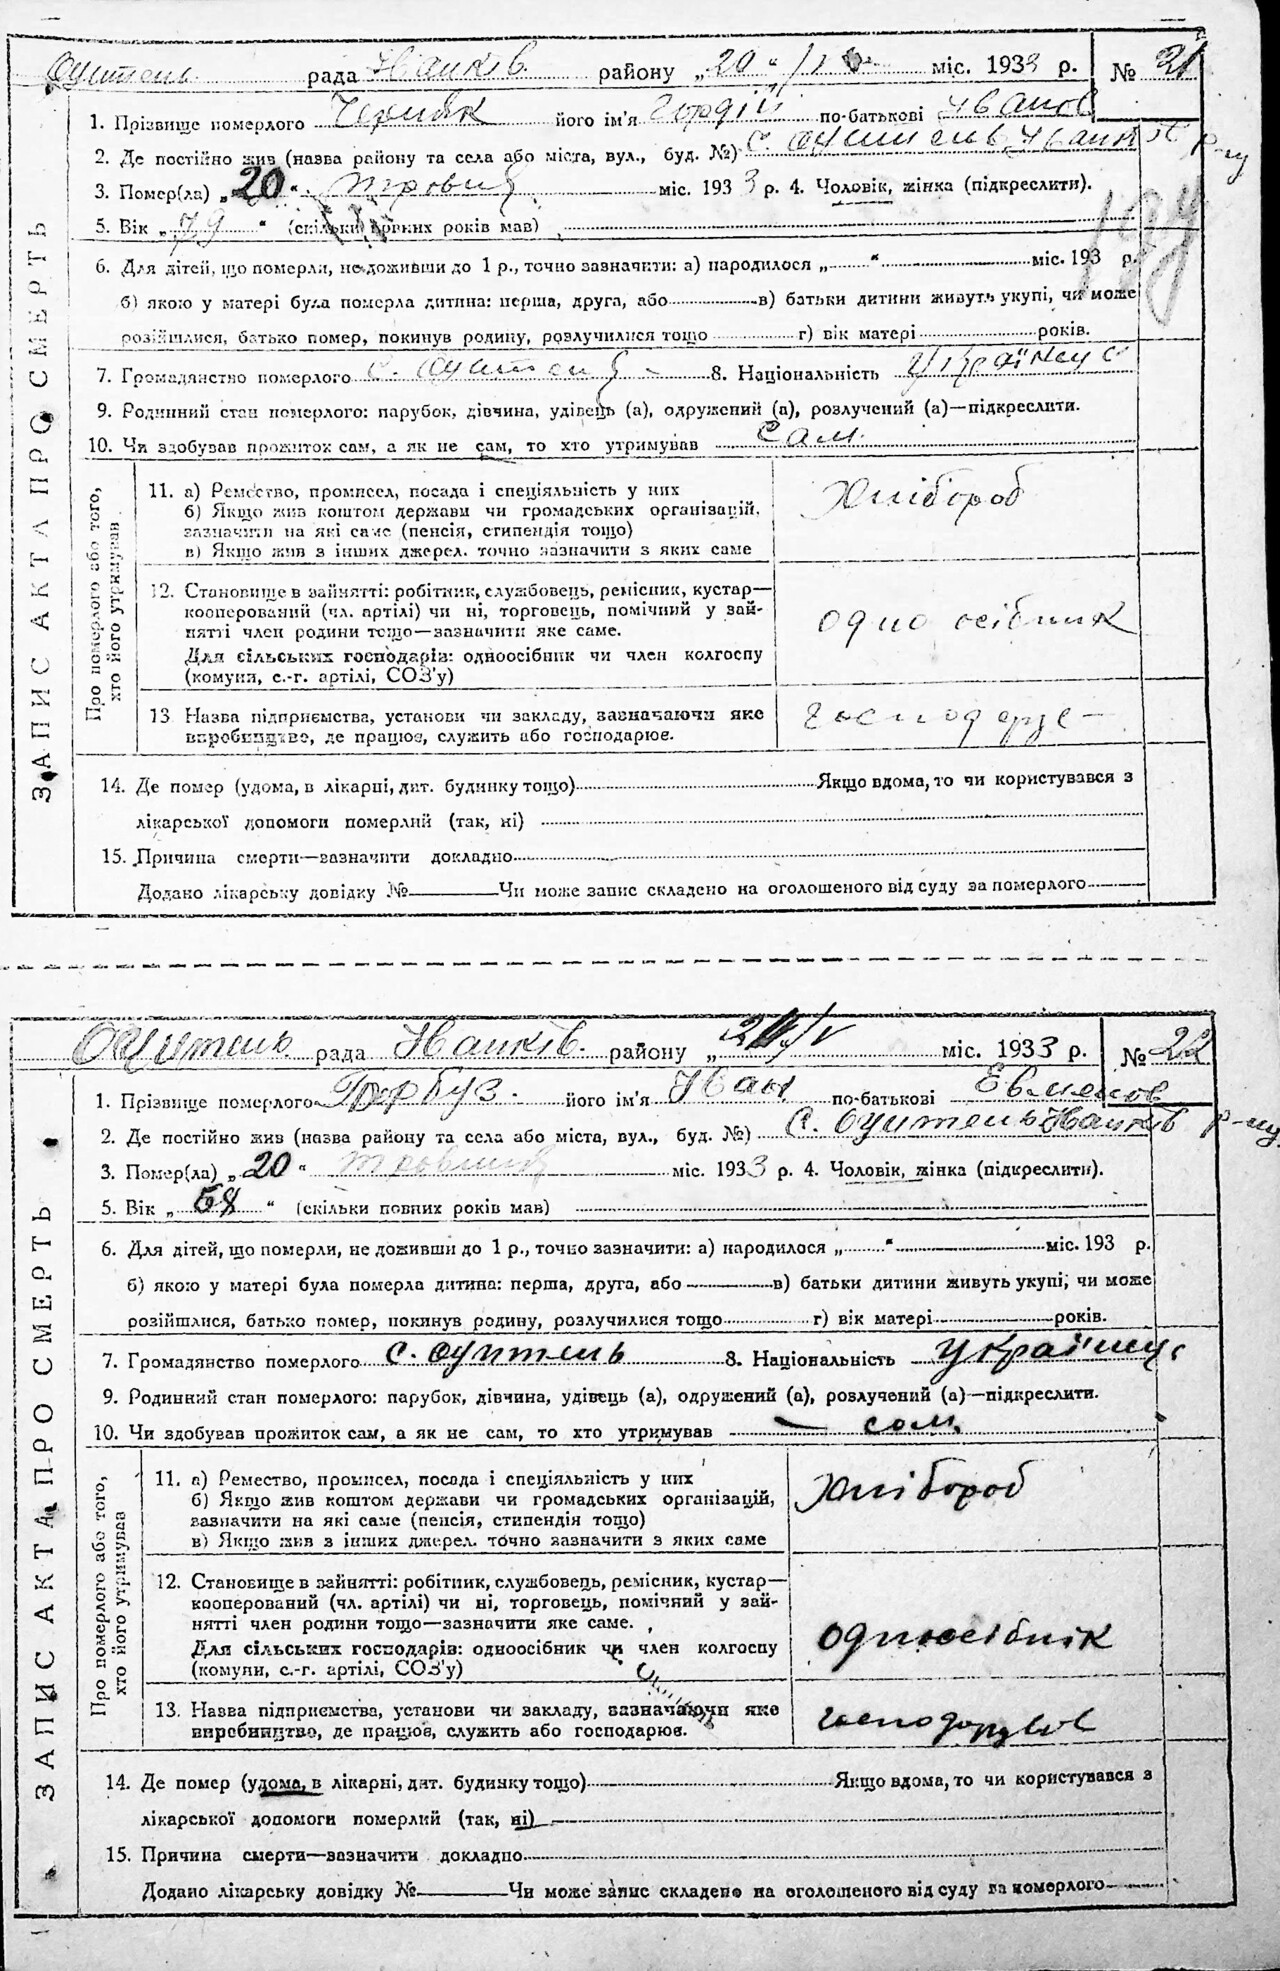 Оцитель рада Іванків району „20“/V міс. 1933 р. № 21
1. Прізвище померлого Черняк його ім'я Гордій по-батькові Іванов
2. Де постійно жив (назва району та села або міста, вул., буд. №) с. Оцитель Іванків р-ну
3. Помер(ла) „20“ травня міс. 1933 р. 4. Чоловік, жінка (підкреслити).
5. Вік „79“ (скільки повних років мав)
6. Для дітей, що померли, не доживши до 1 р., точно зазначити: а) народилося „ “ міс. 193 р.
б) якою у матері була померла дитина: перша, друга, або в) батьки дитини живуть укупі, чи може
розійшлися, батько помер, покинув родину, розлучилися тощо г) вік матері років.
7. Громадянство померлого с. Оцитель 8. Національність Українец
9. Родинний стан померлого: парубок, дівчина, удівець (а), одружений (а), розлучений (а)—підкреслити.
10. Чи здобував прожиток сам, а як не сам, то хто утримував сам.
ЗАПИС АКТА ПРО СМЕРТЬ
Про померлого або того, хто його утримував
11. а) Ремество, промисел, посада і спеціяльність у них
б) Якщо жив коштом держави чи громадських організацій,
зазначити на які саме (пенсія, стипендія тощо)
в) Якщо жив з інших джерел. точно зазначити з яких саме
Хлібороб
12. Становище в зайнятті: робітник, службовець, ремісник, кустар—
кооперований (чл. артілі) чи ні, торговець, помічний у зай-
нятті член родини тощо—зазначити яке саме.
Для сільських господарів: одноосібник чи член колгоспу
(комуни, с.-г. артілі, СОЗ'у)
одноосібник
13 Назва підприємства, установи чи закладу, зазначаючи яке
виробництво, де працює, служить або господарює.
14. Де помер (удома, в лікарні, дит. будинку тощо) Якщо вдома, то чи користувався з
лікарської допомоги померлий (так, ні)
15. Причина смерти—зазначити докладно
Додано лікарську довідку № Чи може запис складено на оголошеного від суду за померлого
Оцитель рада Іванків. району „ /V міс. 1933 р. № 22
1. Прізвище померлого Гарбуз. його ім'я Іван по-батькові Евменов
2. Де постійно жив (назва району та села або міста, вул., буд. №) с. Оцитель Іванків р-ну
3. Помер(ла) „20“ травня міс. 1933 р. 4. Чоловік, жінка (підкреслити).
5. Вік „ “ (скільки повних років мав)
6. Для дітей, що померли, не доживши до 1 р., точно зазначити: а) народилося „ “ міс. 193 р.
б) якою у матері була померла дитина: перша, друга, або в) батьки дитини живуть укупі, чи може
розійшлися, батько помер, покинув родину, розлучилися тощо г) вік матері років.
7. Громадянство померлого с. Оцитель 8. Національність українец
9. Родинний стан померлого: парубок, дівчина, удівець (а), одружений (а), розлучений (а)—підкреслити.
10. Чи здобував прожиток сам, а як не сам, то хто утримував — сам.
ЗАПИС АКТА ПРО СМЕРТЬ
Про померлого або того, хто його утримував
11. а) Ремество, промисел, посада і спеціяльність у них
б) Якщо жив коштом держави чи громадських організацій,
зазначити на які саме (пенсія, стипендія тощо)
в) Якщо жив з інших джерел. точно зазначити з яких саме
Хлібороб
12. Становище в зайнятті: робітник, службовець, ремісник, кустар—
кооперований (чл. артілі) чи ні, торговець, помічний у зай-
нятті член родини тощо—зазначити яке саме.
Для сільських господарів: одноосібник чи член колгоспу
(комуни, с.-г. артілі, СОЗ'у)
одноосібнік
13. Назва підприємства, установи чи закладу, зазначаючи яке
виробництво, де працює, служить або господарює.
господорував
14. Де помер (удома, в лікарні, дит. будинку тощо) Якщо вдома, то чи користувався з
лікарської допомоги померлий (так, ні)
15. Причина смерти—зазначити докладно
Додано лікарську довідку № Чи може запис складено на оголошеного від суду за померлого